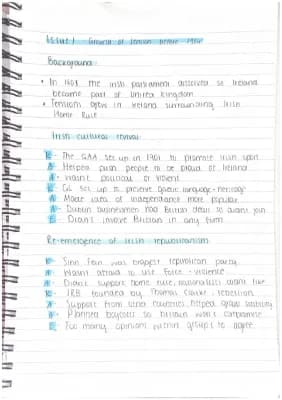 Issue 1 Growth of tension before 1914
Background
• In 1801 the Irish parliament dissolved so Ireland
became part of United Kingdom
• Tensions grew in Ireland surrounding Irish
Home Rule
Irish cultural revival
K - The GAA set up in 1901 to promote Irish sport
A - Helped push people to be proud of Ireland
A - Wasn't political or violent
K - GL set up to preserve Gaelic language + heritage
A - Made idea of independence more popular
A - Dublin businessmen had British deals so didn't join
E - Didn't involve Britain in any form
Re-emergence of Irish republicanism
K - Sinn Fein was biggest republican party
A - Wasn't afraid to use force + violence
A - Didn't support home rule, nationalists didn't like
K - IRB founded by Thomas Clarke, rebellion
A - Support from other countries, helped grow
A - Planned boycotts so Britain won't compromise
E - Too many opinions within groups to agree